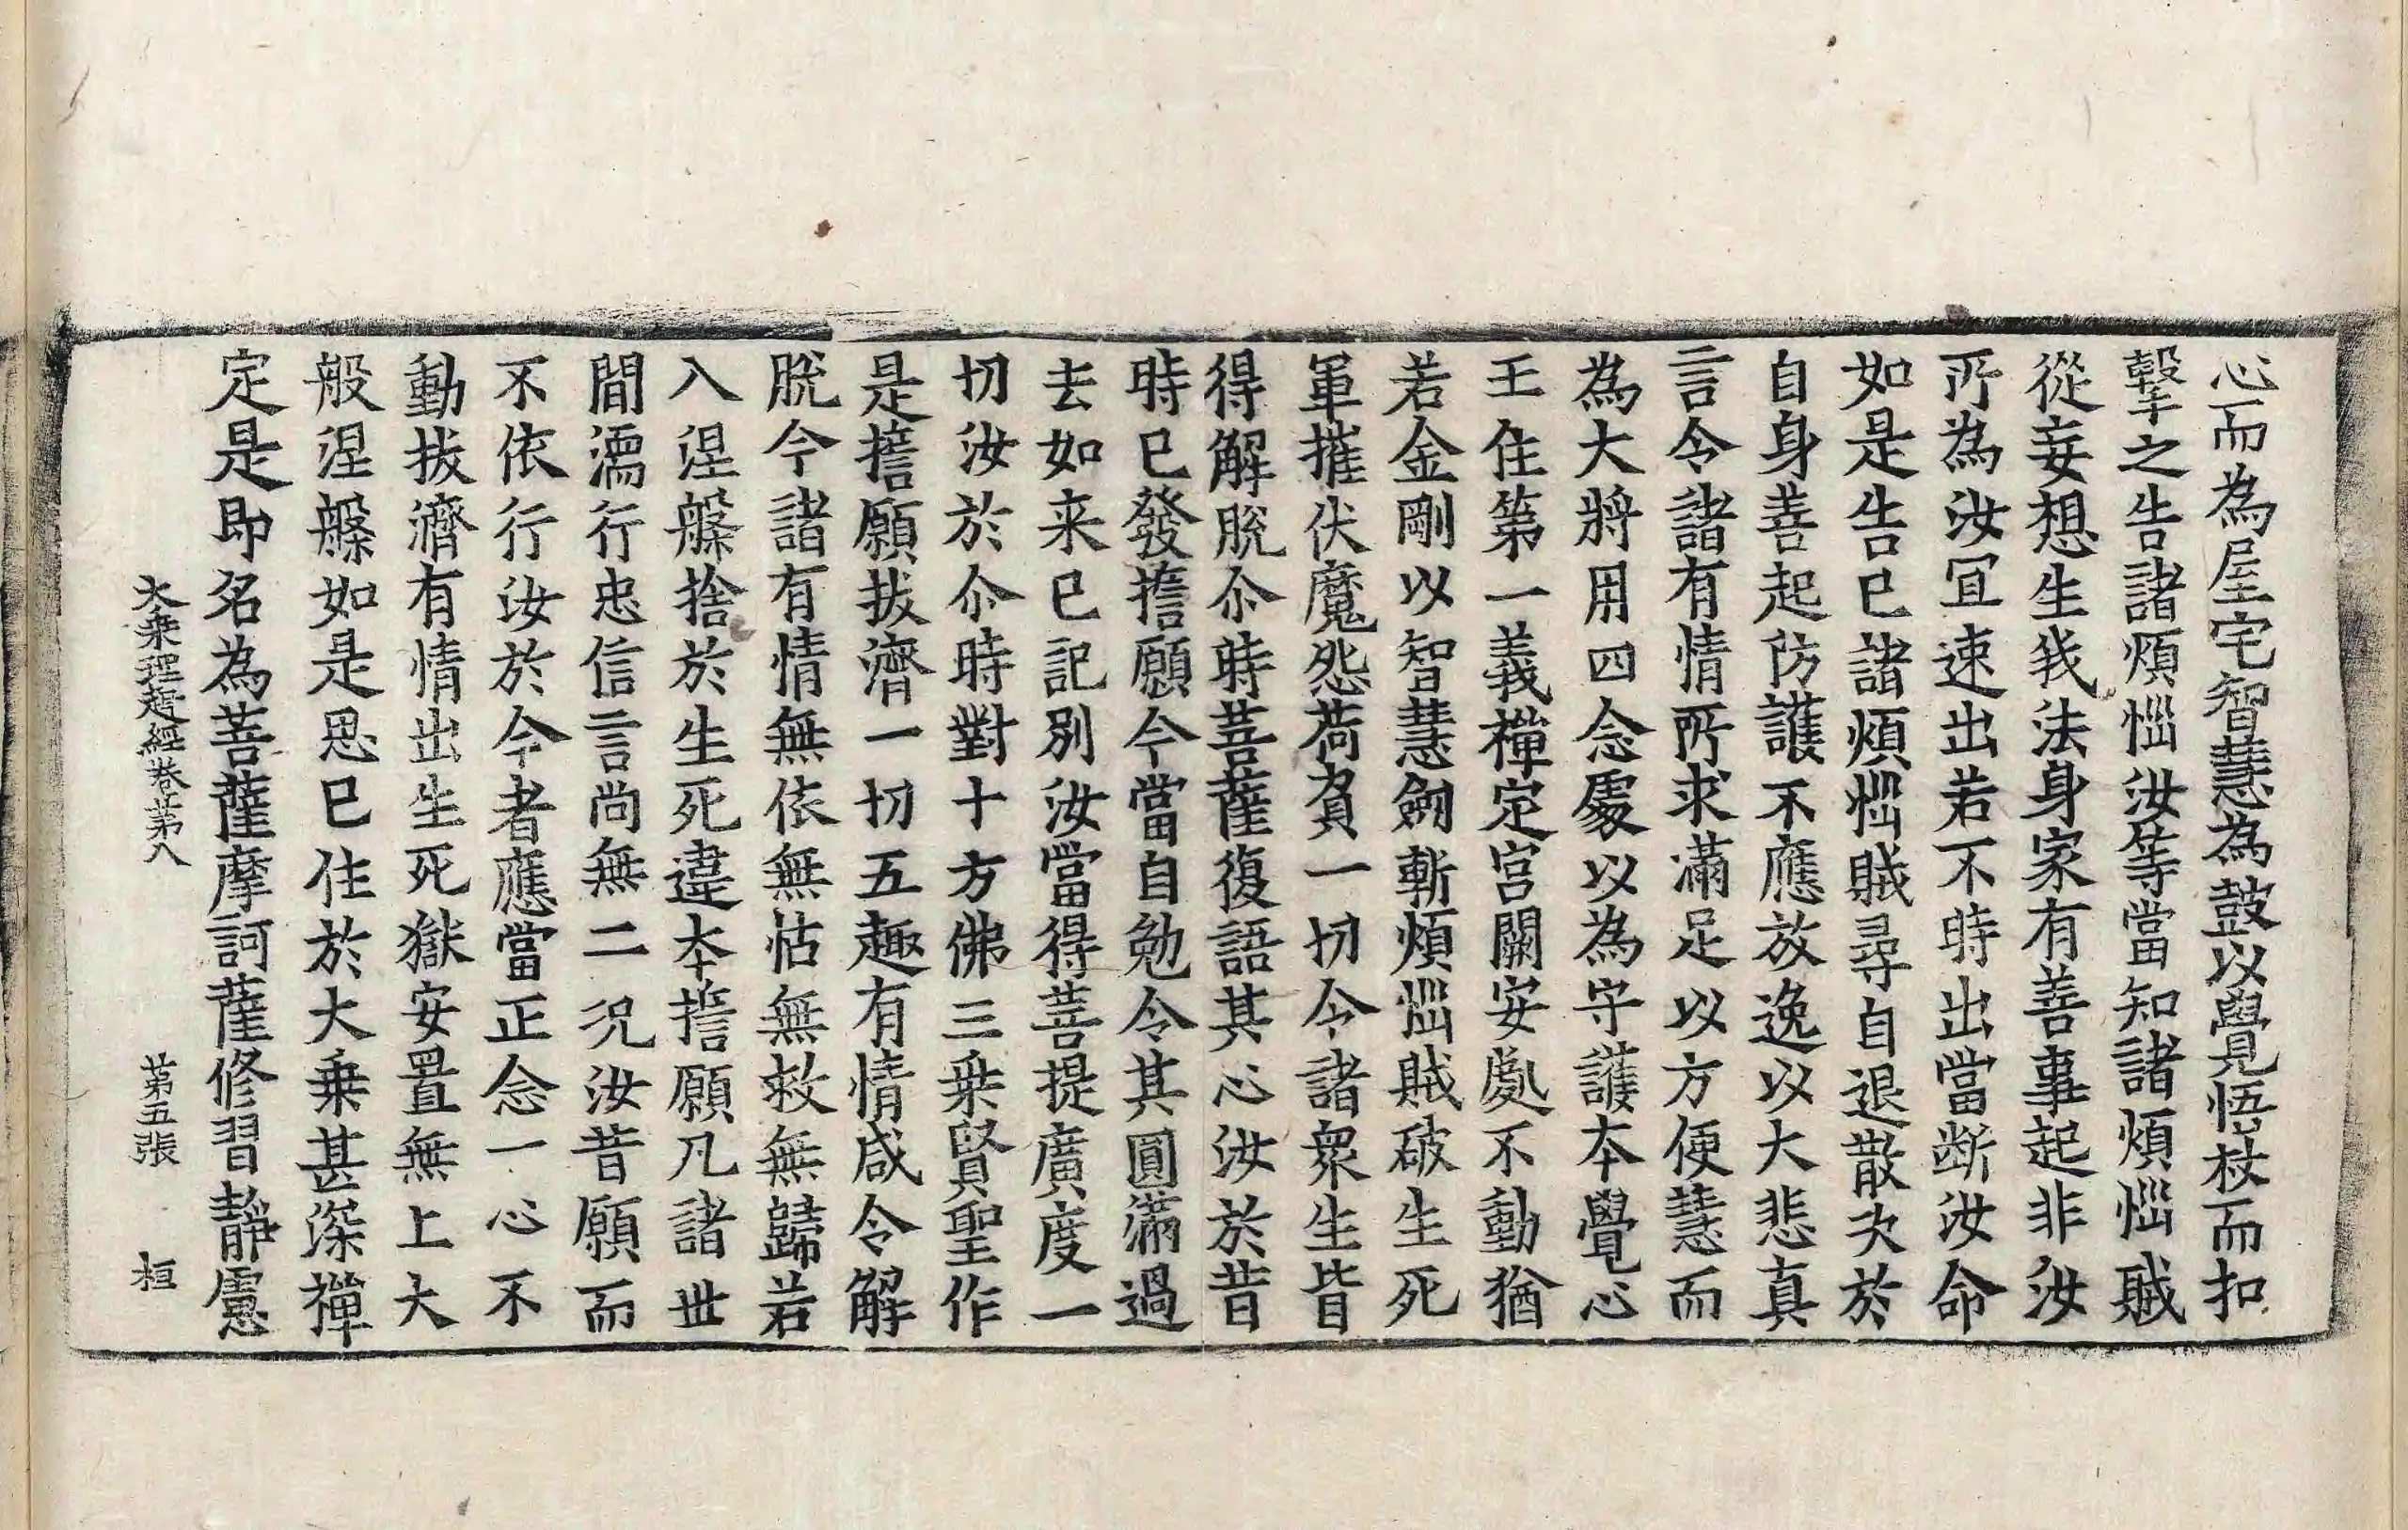 心而為屋宅智慧為鼓以覺悟杖而扣
擊之告諸煩惱汝等當知諸煩惱賊
從妄想生我法身家有善事起非汝
所為汝冝速出若不時出當断汝命
如是告已諸煩惱賊尋自退散次於
自身善起防護不應放逸以大悲真
言令諸有情所求滿足以方便慧而
為大將用四念處以為守護本覺心
王住第一義禪定宮闕安處不動猶
若金剛以智慧劒斬煩惱賊破生死
軍摧伏魔怨荷負一切令諸眾生皆
得解脫尒時菩薩復語其心汝於昔
時已發擔願今當自勉令其圓滿過
去如来已記別汝當得菩提廣度一
切汝於尒時對十方佛三乗賢聖作
是擔願拔濟一切五趣有情咸令解
脫今諸有情無依無怙無救無歸若
入涅槃捨於生死違本擔願凡諸世
間濡行忠信言尚無二況汝昔願而
不依行汝於今者應當正念一心不
動拔濟有情出生死獄安置無上大
般涅槃如是思已住於大乗甚深禪
定是即名為菩薩摩訶薩修習靜慮
大乗理趣經卷苐八 苐五張 桓